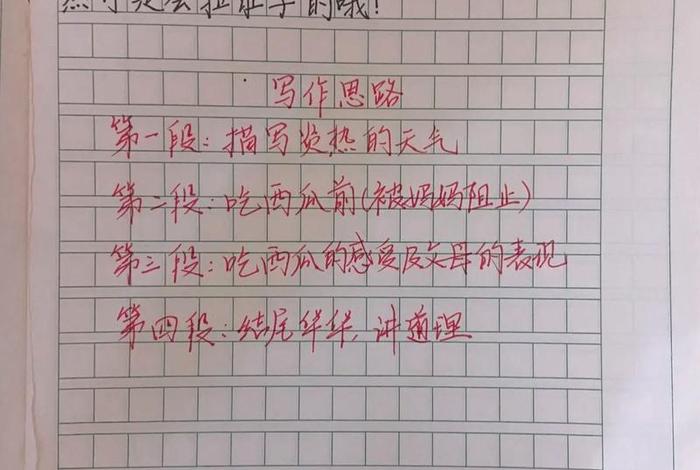 会拉肚子的哦!
写作思路
第一段:描写炎热的天气
第二段:吃西瓜前(被妈妈阻止)
第三段:吃西瓜的感受及父母的表现
第四段:结尾华华,讲道理